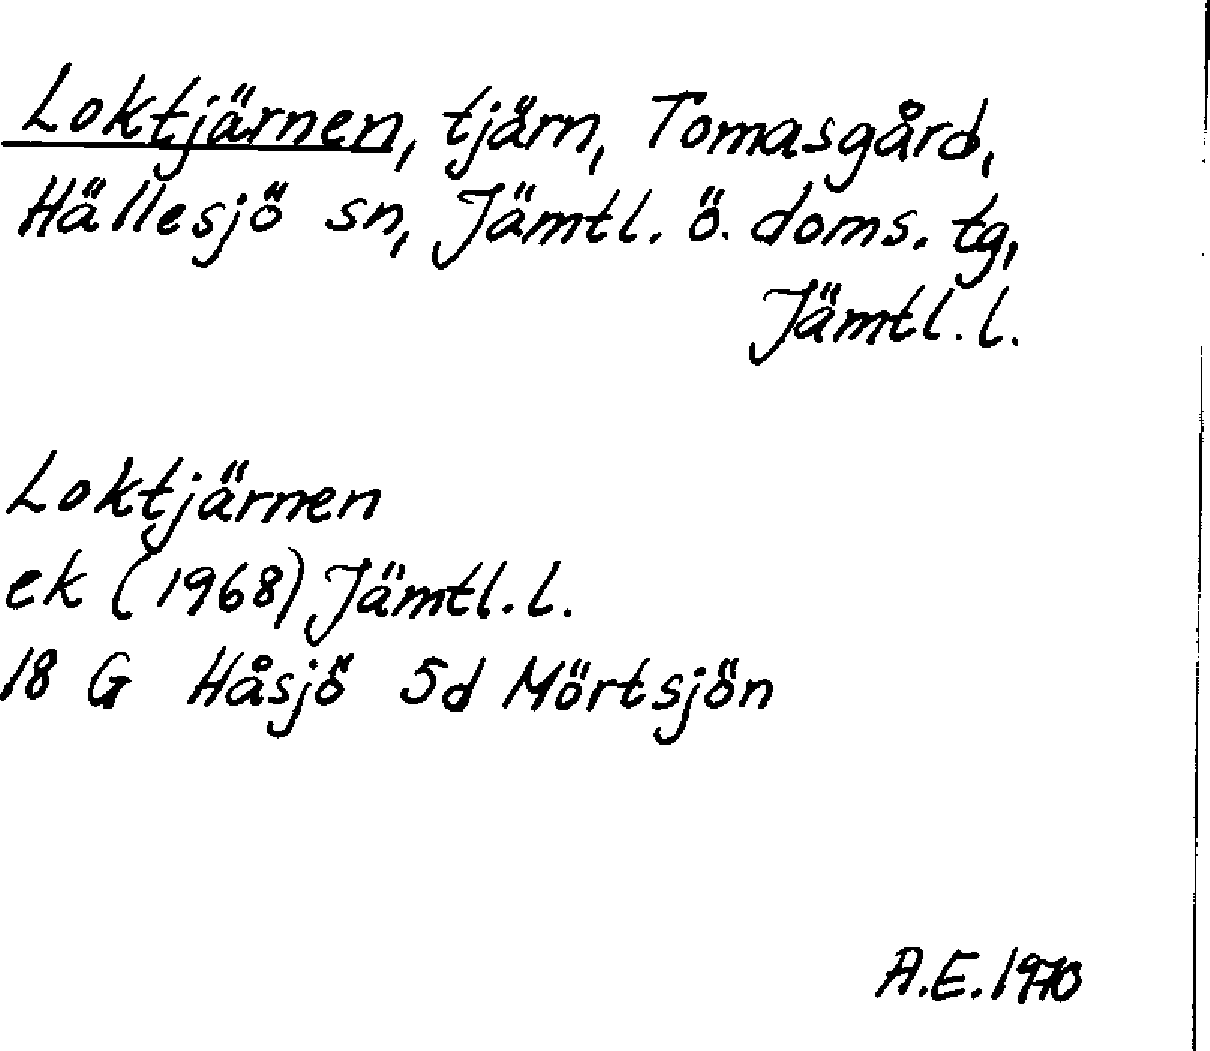 Loktjärnen, tjärn, Tomasgård,
Hällesjö sn, Jämtl. ö. doms. tg,
Jämtl. l.
Loktjärnen
ek (1968) Jämtl. l.
18 G Håsjö 5d Mörtsjön
A.E. 1970